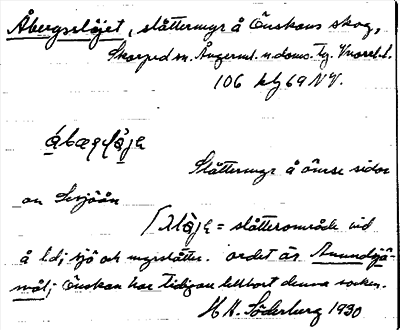 Åbergsslåjet, slåttermyr å Önskans skog,
Skorped sn. Ångerml. n. doms. Tg.
106 kbg 69 NV.
Slåttermyr å ömse sidor
om Sesjöån
= slåtterområde vid
å l. dy sjö och myrslåtter. Ordet är Anundsjö-
mål; Önskan har tidigare tillhört denna socken.
H. H. Söderberg 1930